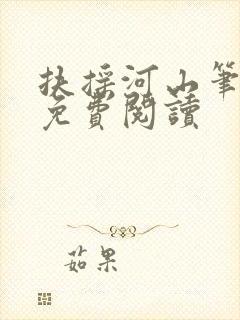 扶搖河山筆
免費閱讀
茹果